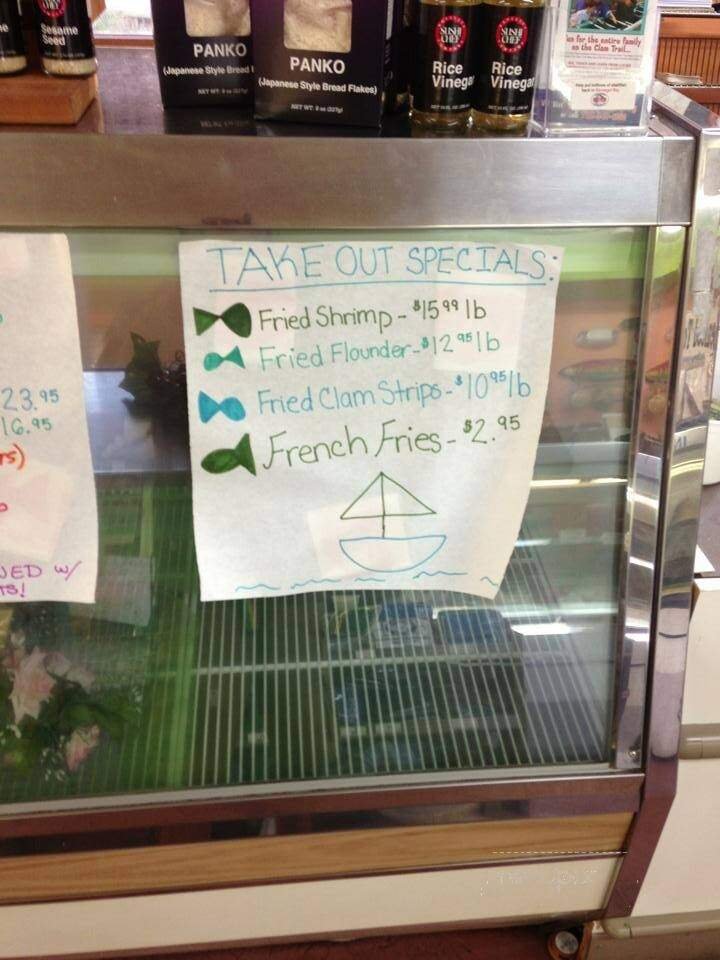 Sesame
Seed
PANKO
(Japanese Style Bread
PANKO
(Japanese Style Bread Flakes)
SUSHI
CHEF
Rice
Vinegar
SUSHI
CHEF
Rice
Vinegar
for the entire family
on the Clam Trail...
TAKE OUT SPECIALS:
Fried Shrimp - $15.99 lb
Fried Flounder - $12.95 lb
Fried Clam Strips - $10.95 lb
French Fries - $2.95
23.95
16.95
W/